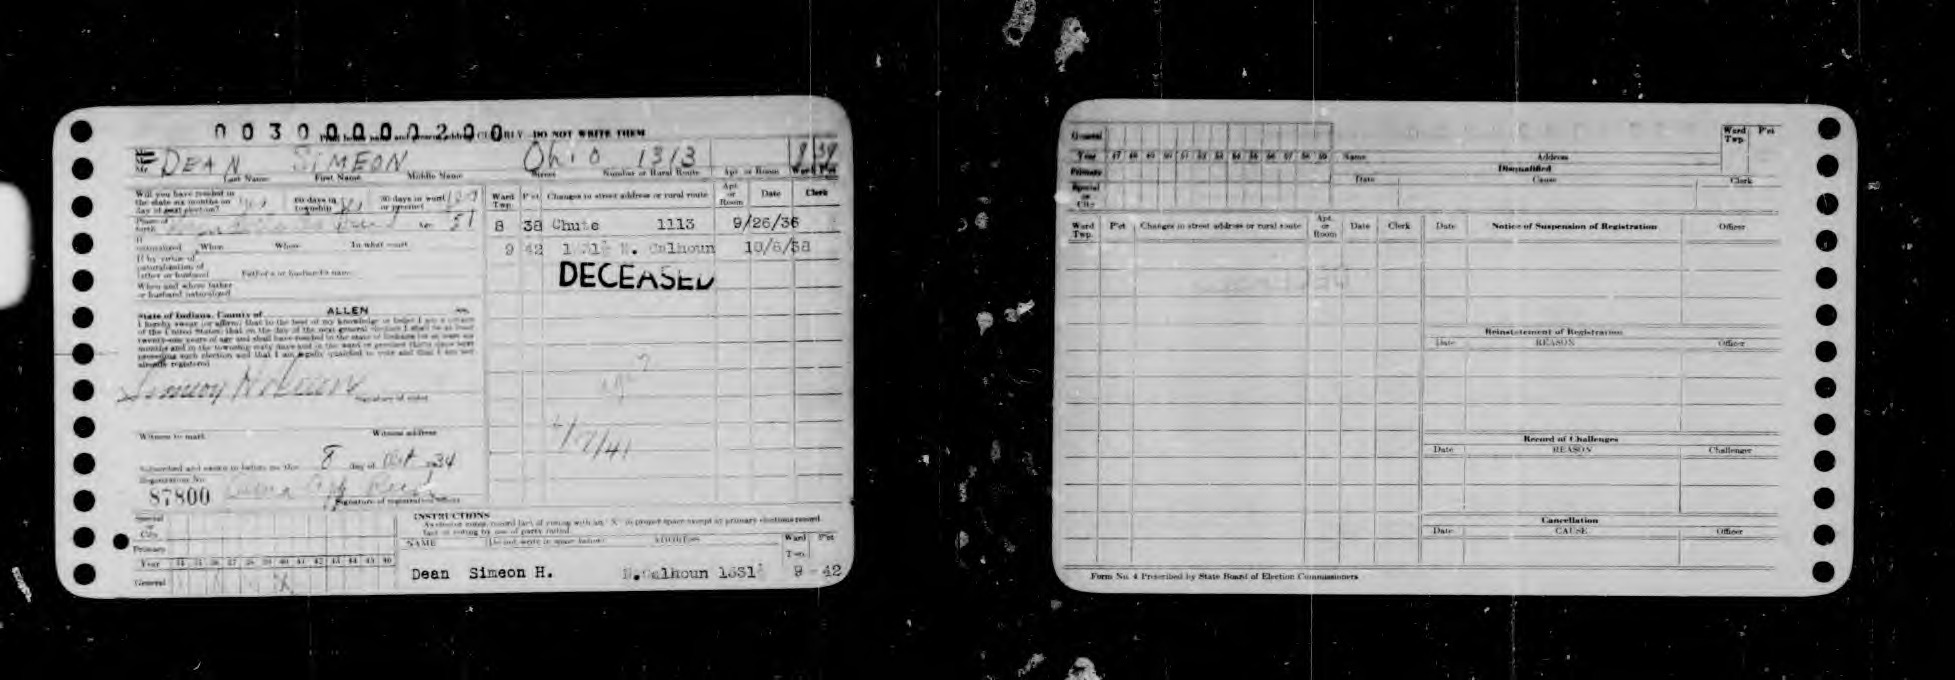 0030000200
DO NOT WRITE THEM
DEAN SIMEON Ohio 1313
Last Name First Name Middle Name Street Number or Rural Route Apt. or Room Ward Pct
Will you have resided in
the state six months on yes 60 days in yes 30 days in ward
day of next election? township or precinct
Place of
birth Age 51
If
naturalized When Where In what court
If by virtue of
naturalization of
father or husband Father's or husband's name
When and where father
or husband naturalized
Ward Twp. P'ct Changes to street address or rural route Apt. or Room Date Clerk
8 38 Chute 1113 9/26/36
9 42 N. Calhoun 10/6/38
DECEASED
4/7/41
State of Indiana, County of ALLEN ss.
I hereby swear (or affirm) that to the best of my knowledge or belief I am a citizen
of the United States; that on the day of the next general election I shall be at least
twenty-one years of age and shall have resided in the state of Indiana for at least six
months and in the township sixty days and in the ward or precinct thirty days next
preceding such election and that I am legally qualified to vote and that I am not
already registered
Simeon H Dean
Signature of voter
Witness to mark Witness address
Subscribed and sworn to before me this 8 day of 34
Registration No.
87800
Signature of registration officer
INSTRUCTIONS
Special
or
City
Primary
Year 34 35 36 37 38 39 40 41 42 43 44 45 46
General
NAME (Do not write in space below) ADDRESS Ward Twp. P'ct
Dean Simeon H. N.Calhoun 1631½ 9 - 42
General
Year 47 48 49 50 51 52 53 54 55 56 57 58 59
Primary
Special
or
City
Name Address Ward Twp. P'ct
Disqualified
Date Cause Clerk
Ward Twp. P'ct Changes in street address or rural route Apt. or Room Date Clerk
Date Notice of Suspension of Registration Officer
Reinstatement of Registration
Date REASON Officer
Record of Challenges
Date REASON Challenger
Cancellation
Date CAUSE Officer
Form No. 4 Prescribed by State Board of Election Commissioners